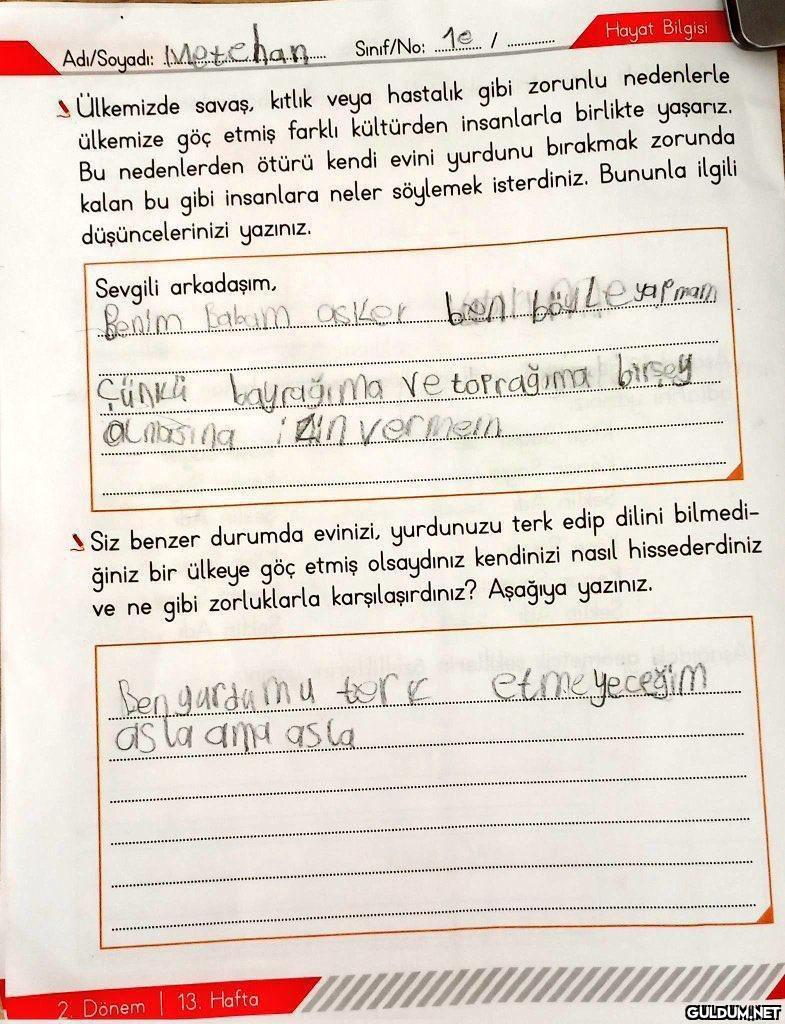 Hayat Bilgisi
Adı/Soyadı: Metehan Sınıf/No: 1e /
Ülkemizde savaş, kıtlık veya hastalık gibi zorunlu nedenlerle
ülkemize göç etmiş farklı kültürden insanlarla birlikte yaşarız.
Bu nedenlerden ötürü kendi evini yurdunu bırakmak zorunda
kalan bu gibi insanlara neler söylemek isterdiniz. Bununla ilgili
düşüncelerinizi yazınız.
Sevgili arkadaşım,
Benim Babam asker ben böyle yapmam
Çünkü bayrağıma ve toprağıma birşey
olmasına izin vermem
Siz benzer durumda evinizi, yurdunuzu terk edip dilini bilmedi-
ğiniz bir ülkeye göç etmiş olsaydınız kendinizi nasıl hissederdiniz
ve ne gibi zorluklarla karşılaşırdınız? Aşağıya yazınız.
Ben yurdumu terk etmeyeceğim
asla ama asla
2. Dönem | 13. Hafta
GULDUM.NET